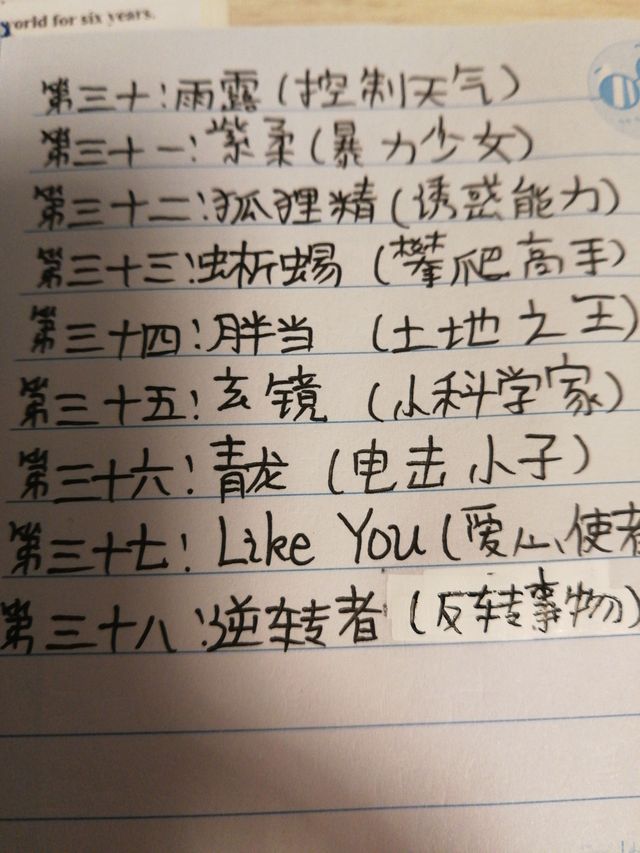 orld for six years.
第三十:雨露(控制天气)
第三十一:紫柔(暴力少女)
第三十二:狐狸精(诱惑能力)
第三十三:蜥蜴(攀爬高手)
第三十四:胖当(土地之王)
第三十五:玄镜(小科学家)
第三十六:青龙(电击小子)
第三十七:Like You(爱心使者
第三十八:逆转者(反转事物)